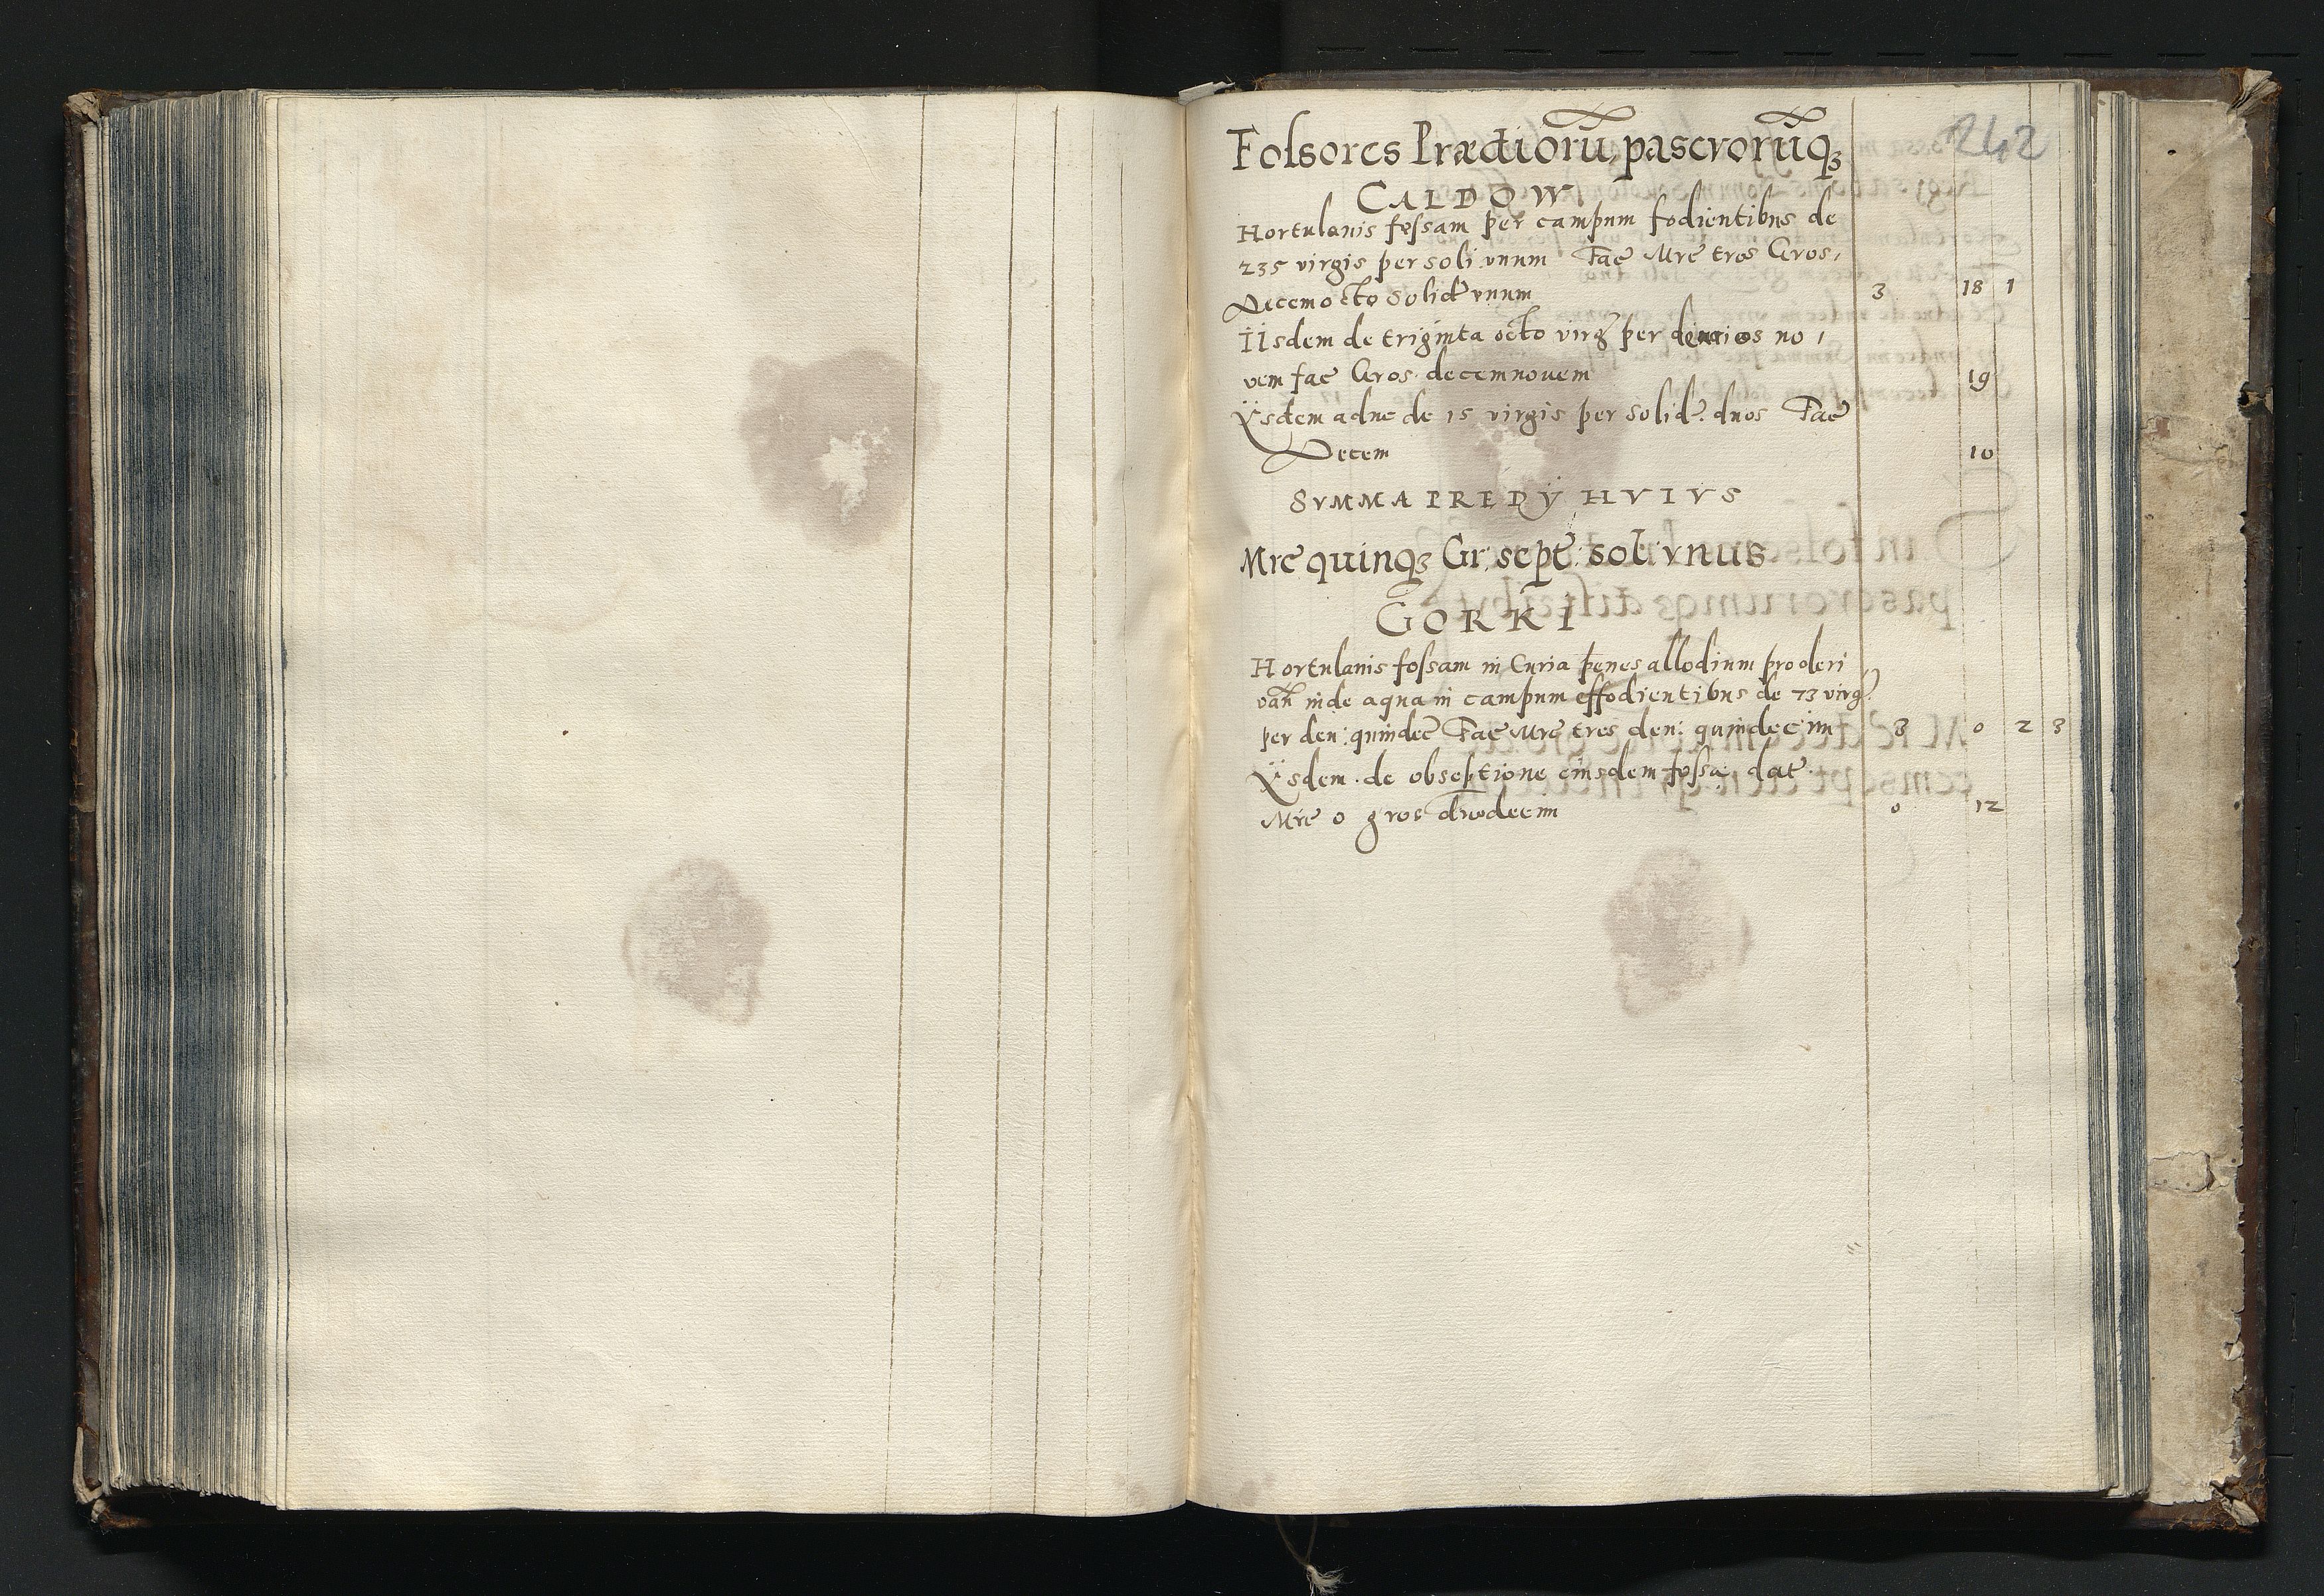 242
Folsores Prædiorũ, pascvorũq3
CALDOW
Hortulanis fossam per campum fodientibus de
235 virgis per soli: vnum Fac Mrc tres Gros,
Decemocto Solid vnum 3 18 1
IIsdem de triginta octo virg per denarios no,
vem fac Gros. decemnouem 19
Ÿsdem adne de 15 virgis per Solid. duos Fac
Decem 10
SVMMA PREDŸ HVIVS
Mrc quinq3 Gr: sept: sol: vnus
GORKI
Hortulanis fossam in Curia penes allodium pro deri
van inde aqua in campum effodientibus de 73 virg
per den: quindec Fac Mrc tres den: quindecim 3 0 2 3
Ÿsdem . de obseptione eiusdem fossa: dat
Mrc 0 gros duodecim 0 12